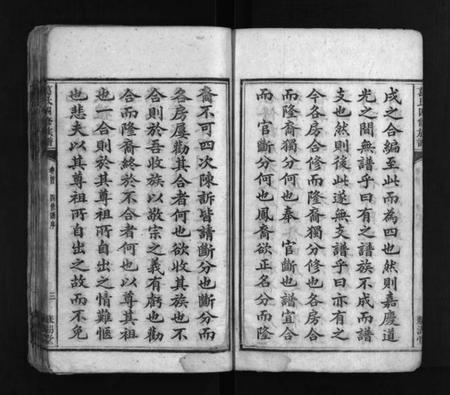 成之合編至此而為四也然則嘉慶道
光之間無譜乎曰有之譜族不成而譜
支也然則後此遂無支譜乎曰亦有之
今各房合修而隆裔獨分修也各房合
而隆裔獨分何也奉 官斷也譜宜合
而 官斷分何也鳳裔欲正名分而隆
裔不可四次陳訴皆請斷分也斷分而
各房屢勸其合者何也欲收其族也不
合則於吾收族以故宗之義有虧也勸
合而隆裔終於不合者何也以尊其祖
也一合則於其尊祖所自出之情難愜
也悲夫以其尊祖所自出之故而不免
卷首 四修譜序
三